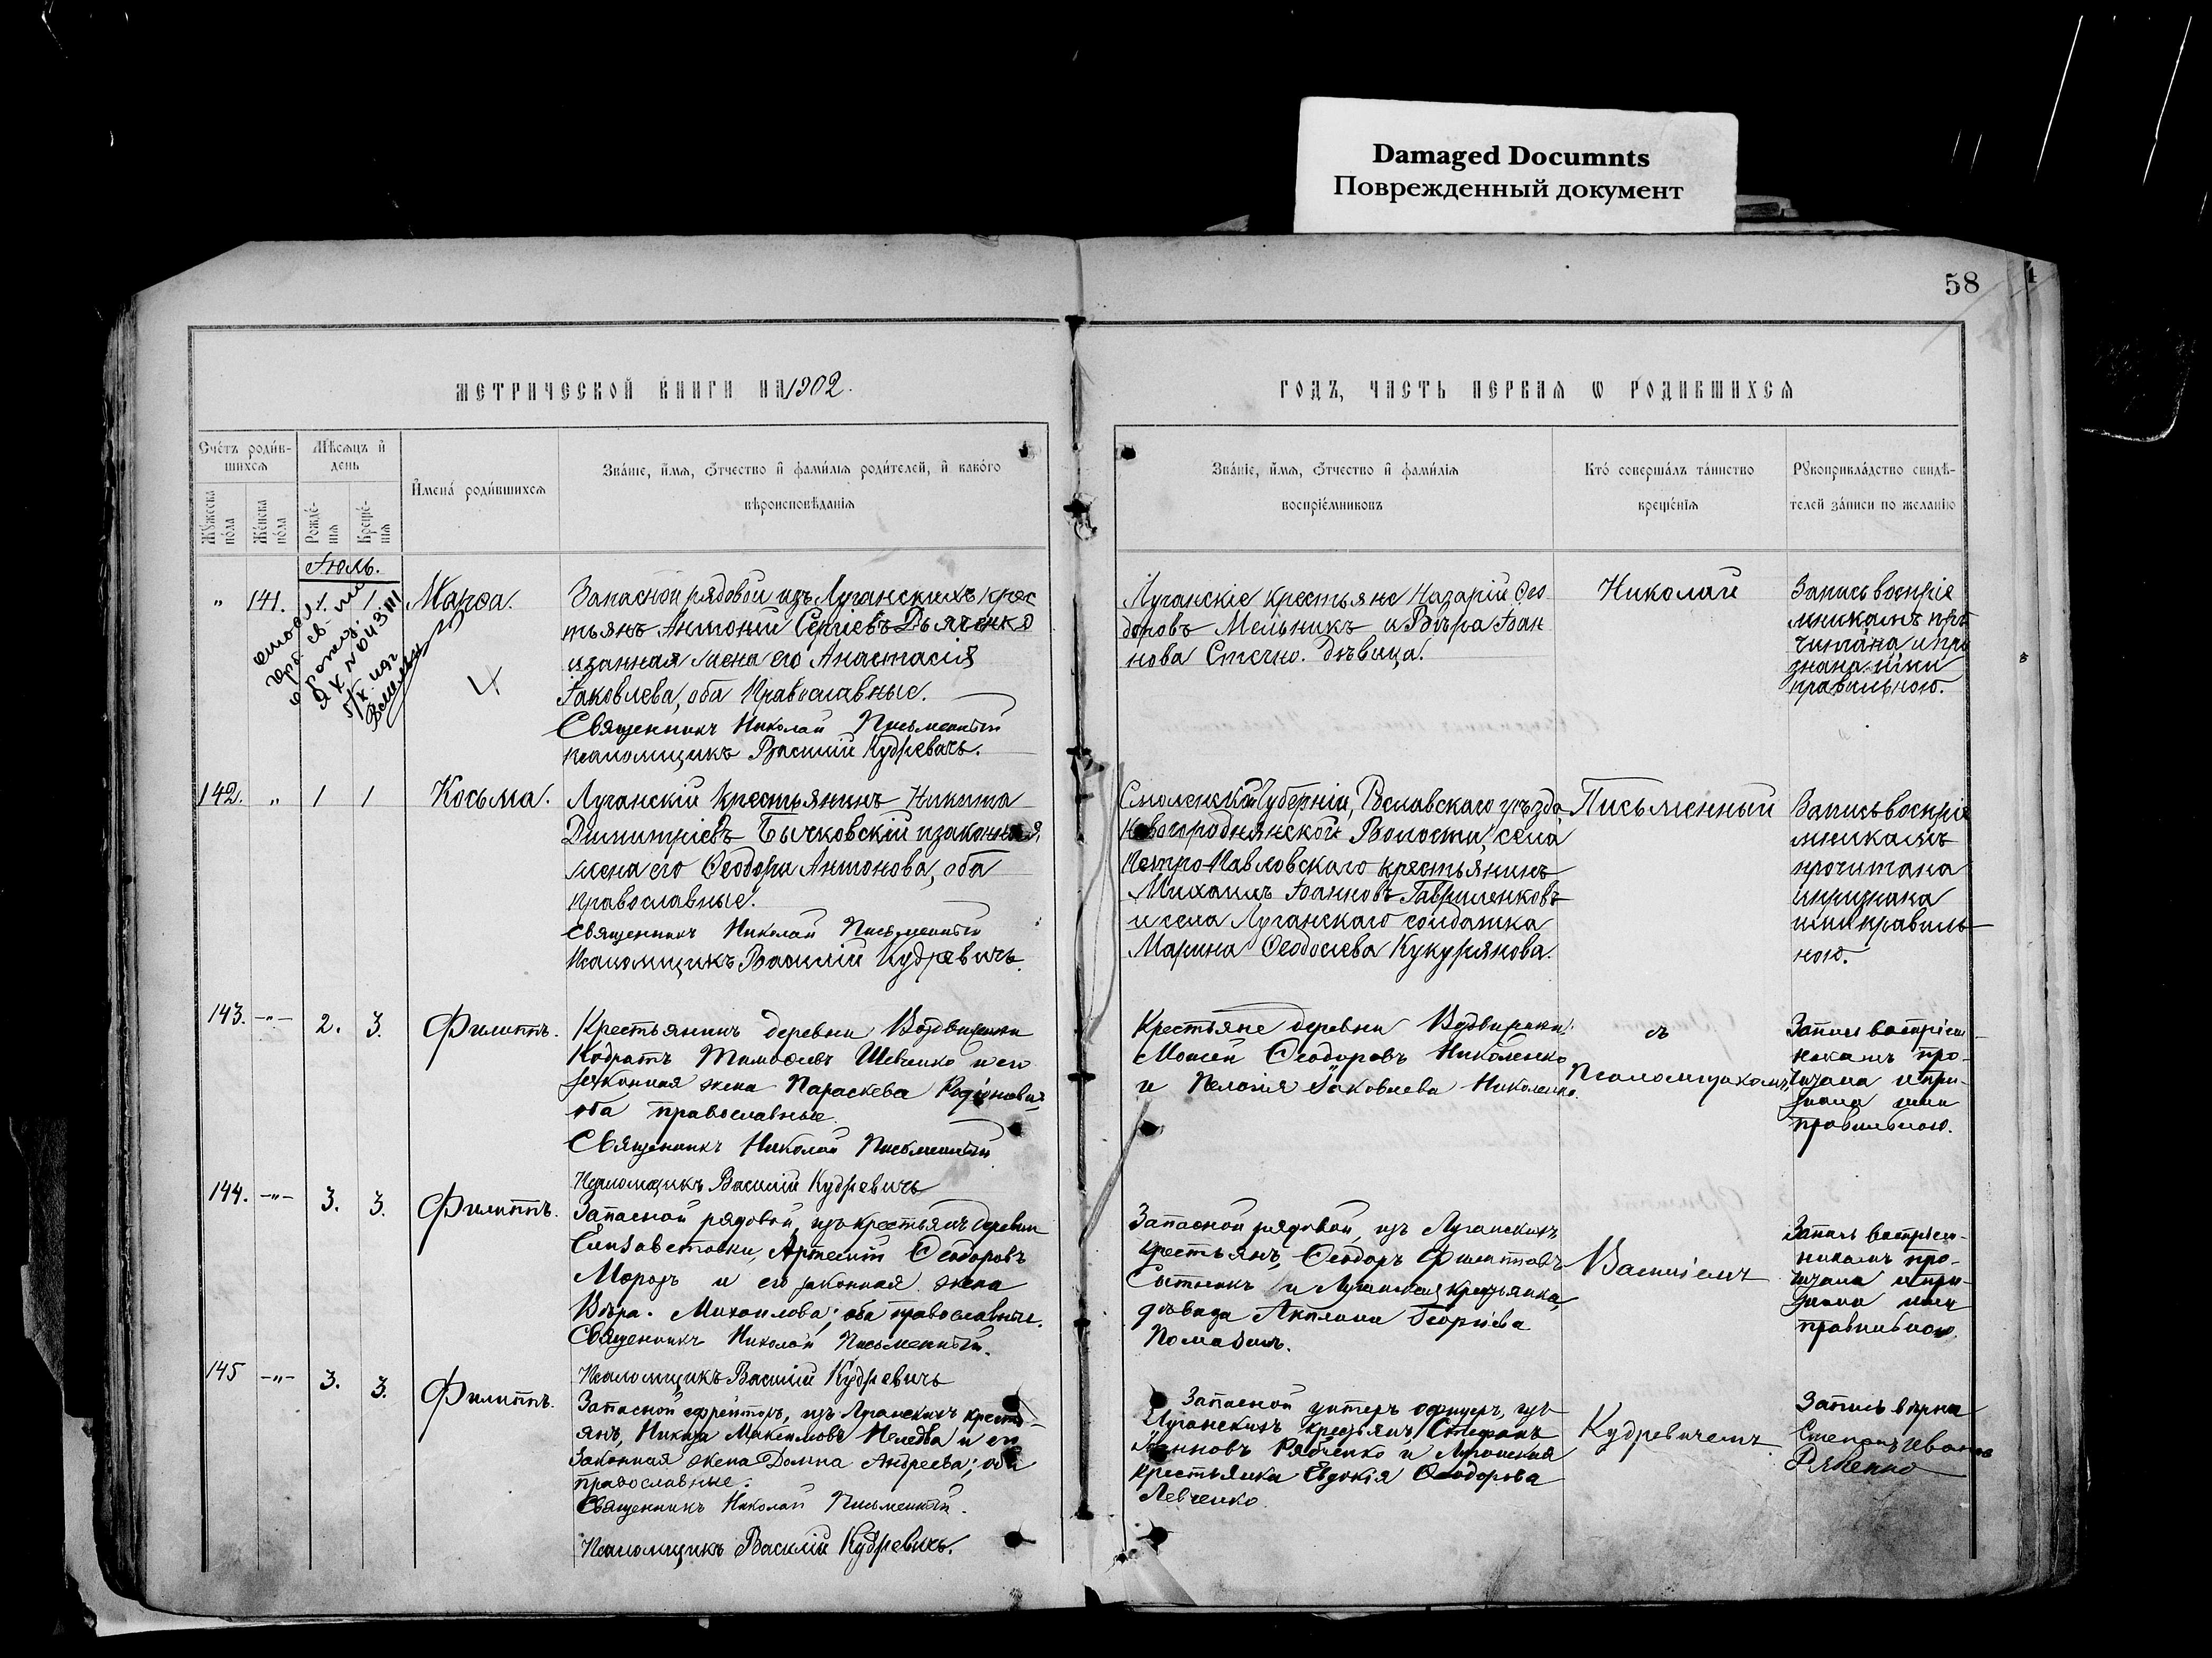 Damaged Documnts
Поврежденный документ
58
МЕТРИЧЕСКОЙ КНИГИ НА 1902.
ГОДЪ, ЧАСТЬ ПЕРВАЯ Ѡ РОДИВШИХСЯ
Счётъ роди́в-
шихсѧ
Мѣсѧцъ и҆
день
Мꙋ́жеска
по́ла
Же́нска
по́ла
Рожде́-
нїѧ
Креще́-
нїѧ
И҆мена̀ роди́вшихсѧ
Зва́нїе, и҆́мѧ, ѻ҆́тчество и҆ фами́лїѧ роди́телей, и҆ како́гѡ
вѣроисповѣ́данїѧ
Зва́нїе, и҆́мѧ, ѻ҆́тчество и҆ фами́лїѧ
воспрїе́мниковъ
Кто̀ соверша́лъ та́инство
креще́нїѧ
Рꙋкоприкла́дство свидѣ́-
телей за́писи по жела́нїю
Іюль.
„ 141. 1. 1 Марѳа.
Запасной рядовой изъ Луганскихъ крес
тьянъ Антоній Сергіевъ Дьяченко
и законная жена его Анастасія
Іаковлева, оба Православные.
Священникъ Николай Письменный
псаломщикъ Василій Кудревичъ.
Луганскіе крестьяне Назарій Ѳео
доровъ Мельникъ и Вѣра Іоан
нова Стечно. дѣвица.
Николай
Запись воспріе
мникамъ про
читана и при
знана ими
правильною.
142. „ 1 1 Косьма.
Луганскій крестьянинъ Никита
Димитріевъ Бычковскій и законная
жена его Ѳеодора Антонова, оба
православные.
Священникъ Николай Письменный
Псаломщикъ Василій Кудревичъ.
Смоленской Губерніи, Рославскаго уѣзда
Волости, села
Петро-Павловскаго крестьянинъ
Михаилъ Іоанновъ Гавриленковъ
и села Луганскаго солдатка
Марина Ѳеодосіева Кукурянова.
Письменный
Запись воспріе
мникамъ
прочитана
и признана
ими правиль
ною.
143. -„- 2. 3. Филиппъ.
Крестьянинъ деревни Воздвиженки
Кодратъ Тимоѳеевъ Шевченко и его
законная жена Параскева Родіонова;
оба православные.
Священникъ Николай Письменный
Псаломщикъ Василій Кудревичъ
Крестьяне деревни
Моисей Ѳеодоровъ Николенко
и Пелагія Іаковлева Николенко.
съ
Псаломщикомъ
Запись воспріем-
никамъ про-
читана и при-
знана ими
правильною.
144. -„- 3. 3. Филиппъ.
Запасной рядовой, изъ крестьянъ деревни
Елисаветовки, Артемій Ѳеодоровъ
Морозъ и его законная жена
Вѣра Михаилова; оба православные.
Священникъ Николай Письменный.
Псаломщикъ Василій Кудревичъ
Запасной рядовой, изъ Луганскихъ
крестьянъ, Ѳеодоръ Филипповъ
Сытникъ и Луганская крестьянка,
дѣвица Акилина Георгіева
Василіемъ
Запись воспріем-
никамъ про-
читана и при-
знана ими
правильною.
145 -„- 3. 3. Филиппъ.
Запасной ефрейторъ, изъ Луганскихъ кресть-
янъ, Никита Максимовъ и его
законная жена Домна Андреева; оба
православные.
Священникъ Николай Письменный.
Псаломщикъ Василій Кудревичъ.
Запасной унтеръ офицеръ, изъ
Луганскихъ крестьянъ, Стефанъ
Іоанновъ Рябченко и Луганская
крестьянка Евдокія Ѳеодорова
Левченко.
Кудревичемъ
Запись вѣрна
Степанъ Ивановъ